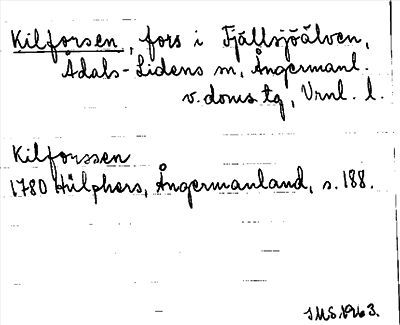 Kilforsen, fors i Fjällsjöälven,
Ådals-Lidens sn, Ångermanl.
v. doms tg, Vrnl. l.
Kilforssen
1780 Hülphers, Ångermanland, s. 188.
IMS 1963.